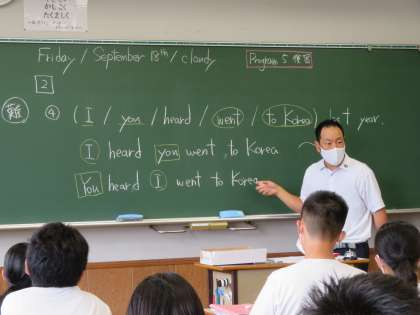 かしこく
たくましく
Friday / September 13th / cloudy
Program 5 復習
2
難 ④ ( I / you / heard / went / to Korea ) last year.
I heard you went to Korea
You heard I went to Korea